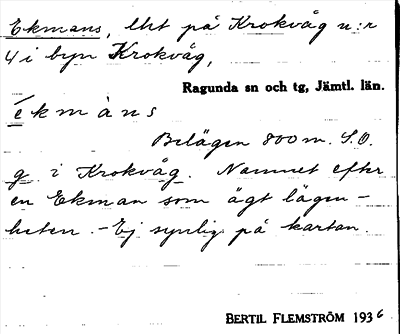 Ekmans, lht på Krokvåg n:r
4 i byn Krokvåg,
Ragunda sn och tg, Jämtl. län.
ékmàns
Belägen 800 m. S.O.
g. i Krokvåg. Namnet efter
en Ekman som ägt lägen-
heten. - Ej synlig på kartan.
BERTIL FLEMSTRÖM 1936